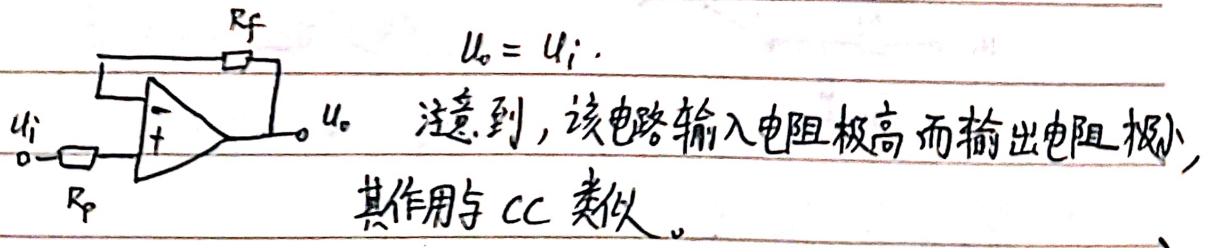 Rf
u₀ = uᵢ.
-
+
uᵢ
u₀
Rp
注意到，该电路输入电阻极高而输出电阻极小，
其作用与 CC 类似。